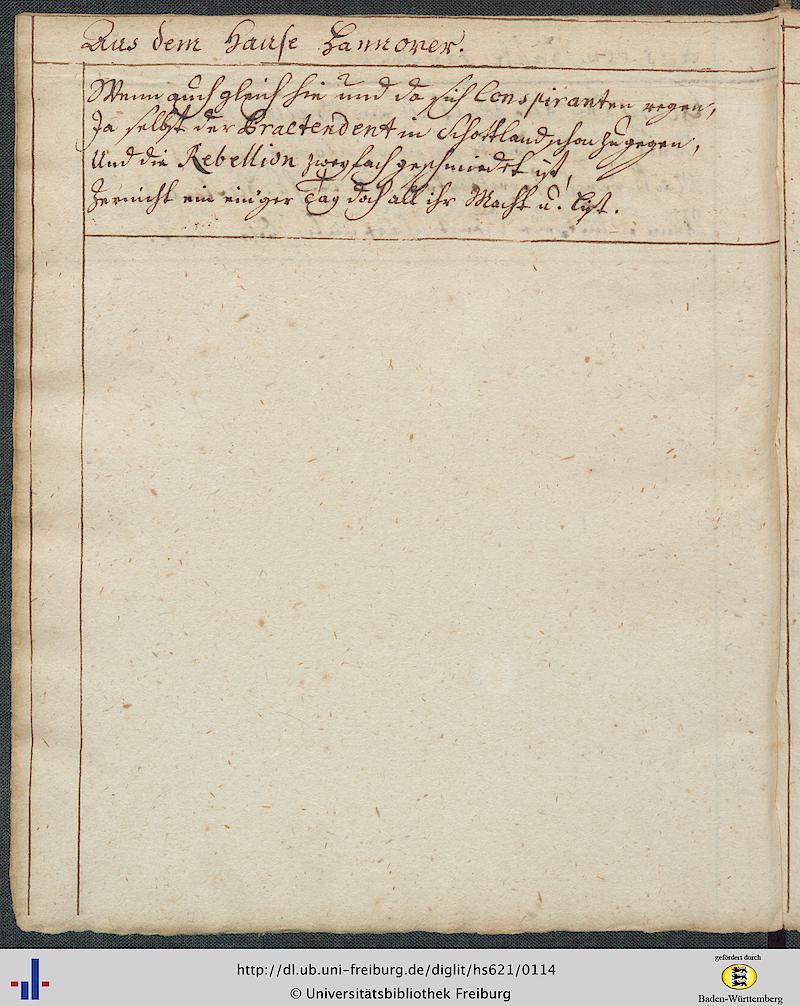 Aus dem Hause Hannover.
Wenn auch gleich hie und da sich Conspiranten regen,
Ja selbst der Praetendent in Schottland schon zugegen,
Und die Rebellion zweyfach geschmiedet ist,
Zernicht ein ein'ger Tag doch all ihr Macht u. List.
http://dl.ub.uni-freiburg.de/diglit/hs621/0114
© Universitätsbibliothek Freiburg
gefördert durch
Baden-Württemberg